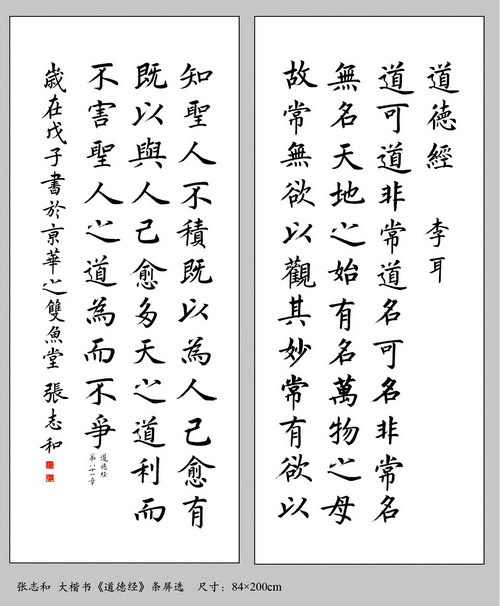 道德經 李耳
道可道非常道名可名非常名
無名天地之始有名萬物之母
故常無欲以觀其妙常有欲以
知聖人不積既以為人己愈有
既以與人己愈多天之道利而
不害聖人之道為而不爭
道德經
第八十一章
歲在戊子書於京華之雙魚堂 張志和
张志和 大楷书《道德经》条屏选 尺寸：84×200cm